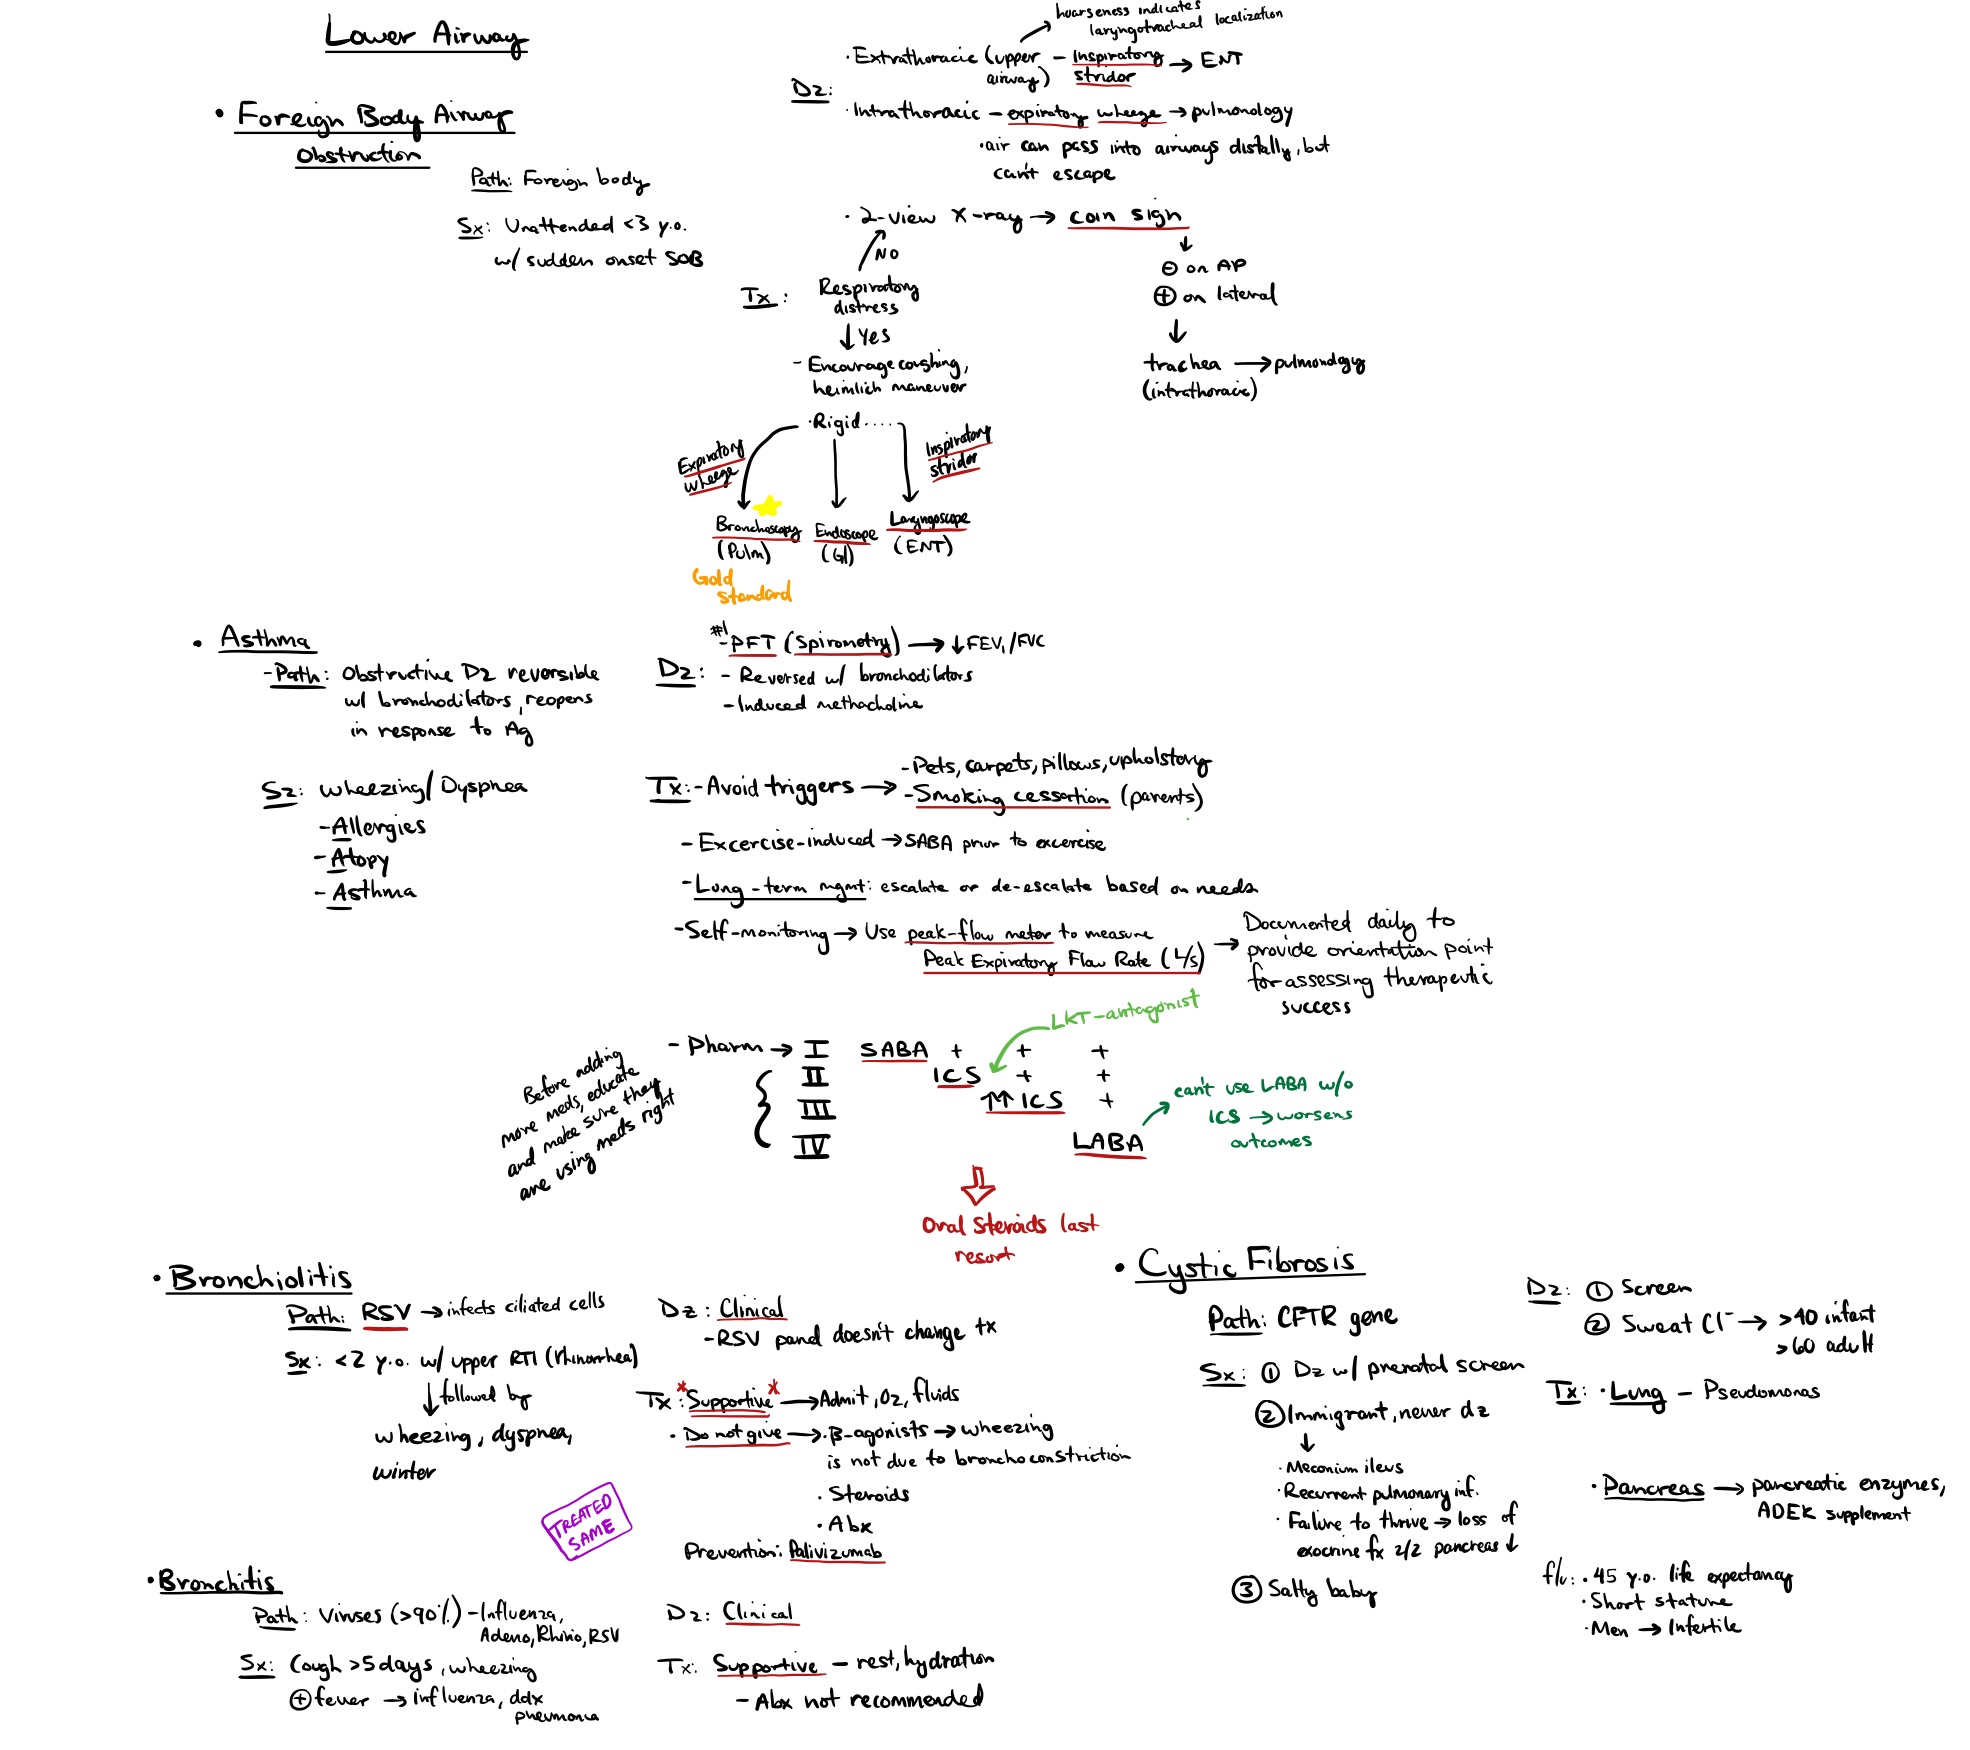 Lower Airway
• Foreign Body Airway
Obstruction
Path: Foreign body
Sx: Unattended <3 y.o.
w/ sudden onset SOB
hoarseness indicates
laryngotracheal localization
Dz:
· Extrathoracic (upper airway) – Inspiratory stridor → ENT
· Intrathoracic – expiratory wheeze → pulmonology
· air can pass into airways distally, but
can't escape
· 2-view X-ray → coin sign
⊖ on AP
⊕ on lateral
trachea → pulmonology
(intrathoracic)
NO
Tx: Respiratory
distress
Yes
- Encourage coughing,
heimlich maneuver
· Rigid ....
Expiratory
wheeze
Inspiratory
stridor
Bronchoscopy
(Pulm)
Endoscope
(GI)
Laryngoscope
(ENT)
Gold
standard
• Asthma
- Path: Obstructive Dz reversible
w/ bronchodilators, reopens
in response to Ag
Sz: Wheezing/Dyspnea
- Allergies
- Atopy
- Asthma
Dz:
#1
- PFT (Spirometry) → ↓FEV₁/FVC
- Reversed w/ bronchodilators
- Induced methacholine
Tx: - Avoid triggers →
- Pets, carpets, pillows, upholstory
- Smoking cessation (parents)
- Excercise-induced → SABA prior to excercise
- Lung-term mgmt: escalate or de-escalate based on needs
- Self-monitoring → Use peak-flow meter to measure
Peak Expiratory Flow Rate (L/s) →
Documented daily to
provide orientation point
for assessing therapeutic
success
LKT-antagonist
- Pharm → I SABA + + +
II ICS + +
III ↑↑ ICS +
IV LABA
Before adding
more meds, educate
and make sure they
are using meds right
can't use LABA w/o
ICS → worsens
outcomes
Oral Steroids last
resort
• Bronchiolitis
Path: RSV → infects ciliated cells
Sx: <2 y.o. w/ upper RTI (rhinorrhea)
↓ followed by
wheezing, dyspnea,
winter
Dz: Clinical
- RSV panel doesn't change tx
Tx: *Supportive* → Admit, O2, fluids
· Do not give → · β-agonists → wheezing
is not due to bronchoconstriction
· Steroids
· Abx
Prevention: Palivizumab
TREATED
SAME
• Bronchitis
Path: Viruses (>90%) – Influenza,
Adeno, Rhino, RSV
Sx: Cough >5 days, wheezing
⊕ fever → influenza, ddx
pneumonia
Dz: Clinical
Tx: Supportive – rest, hydration
- Abx not recommended
• Cystic Fibrosis
Path: CFTR gene
Sx: ① Dz w/ prenatal screen
② Immigrant, never dz
↓
· Meconium ileus
· Recurrent pulmonary inf.
· Failure to thrive → loss of
exocrine fx 2/2 pancreas ↓
③ Salty baby
Dz: ① Screen
② Sweat Cl⁻ → >40 infant
>60 adult
Tx: · Lung – Pseudomonas
· Pancreas → pancreatic enzymes,
ADEK supplement
f/u: · 45 y.o. life expectancy
· Short stature
· Men → Infertile